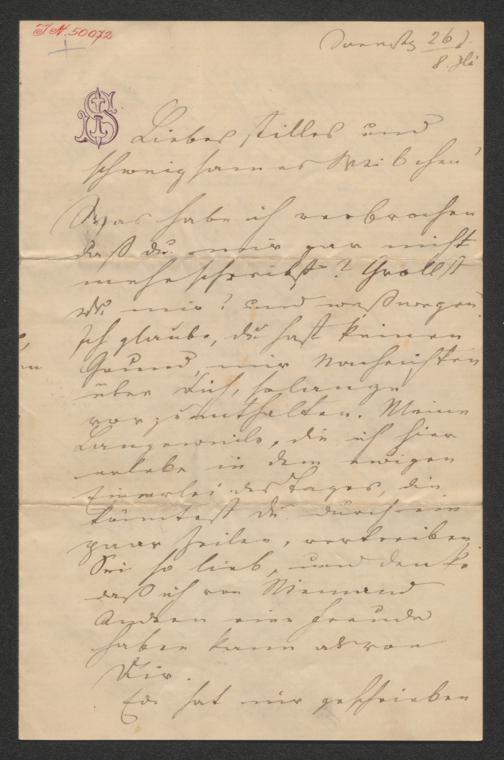 I.N. 50072
26
8.
Liebes stilles und
schweigsames Weibchen!
Was habe ich verbrochen
daß du mir gar nicht
mehr schreibst? Grollst
du mir? und weßwegen
Ich glaube, du hast keinen
Grund, mir Nachrichten
über Dich, so lange
vorzuenthalten. Meine
Langeweile, die ich hier
erlebe in dem ewigen
Einerlei des Tages, die
könntest du durch ein
paar Zeilen, vertreiben.
Sei so lieb, und denke,
daß ich von Niemand
Andern eine Freude
haben kann als von
Dir.
hat mir geschrieben